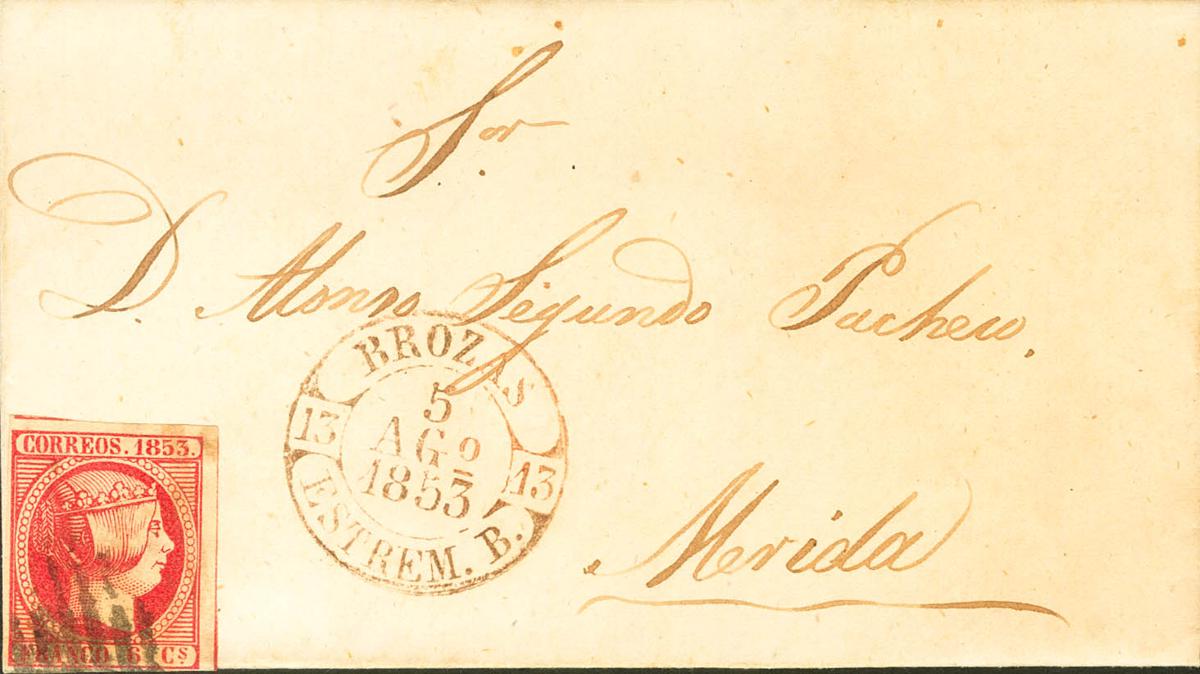 Sor
D. Alonso Segundo Pacheco.
Merida
BROZAS
13 5 13
AGº
1853
ESTREM. B.
CORREOS. 1853.
FRANCO 6 Cs